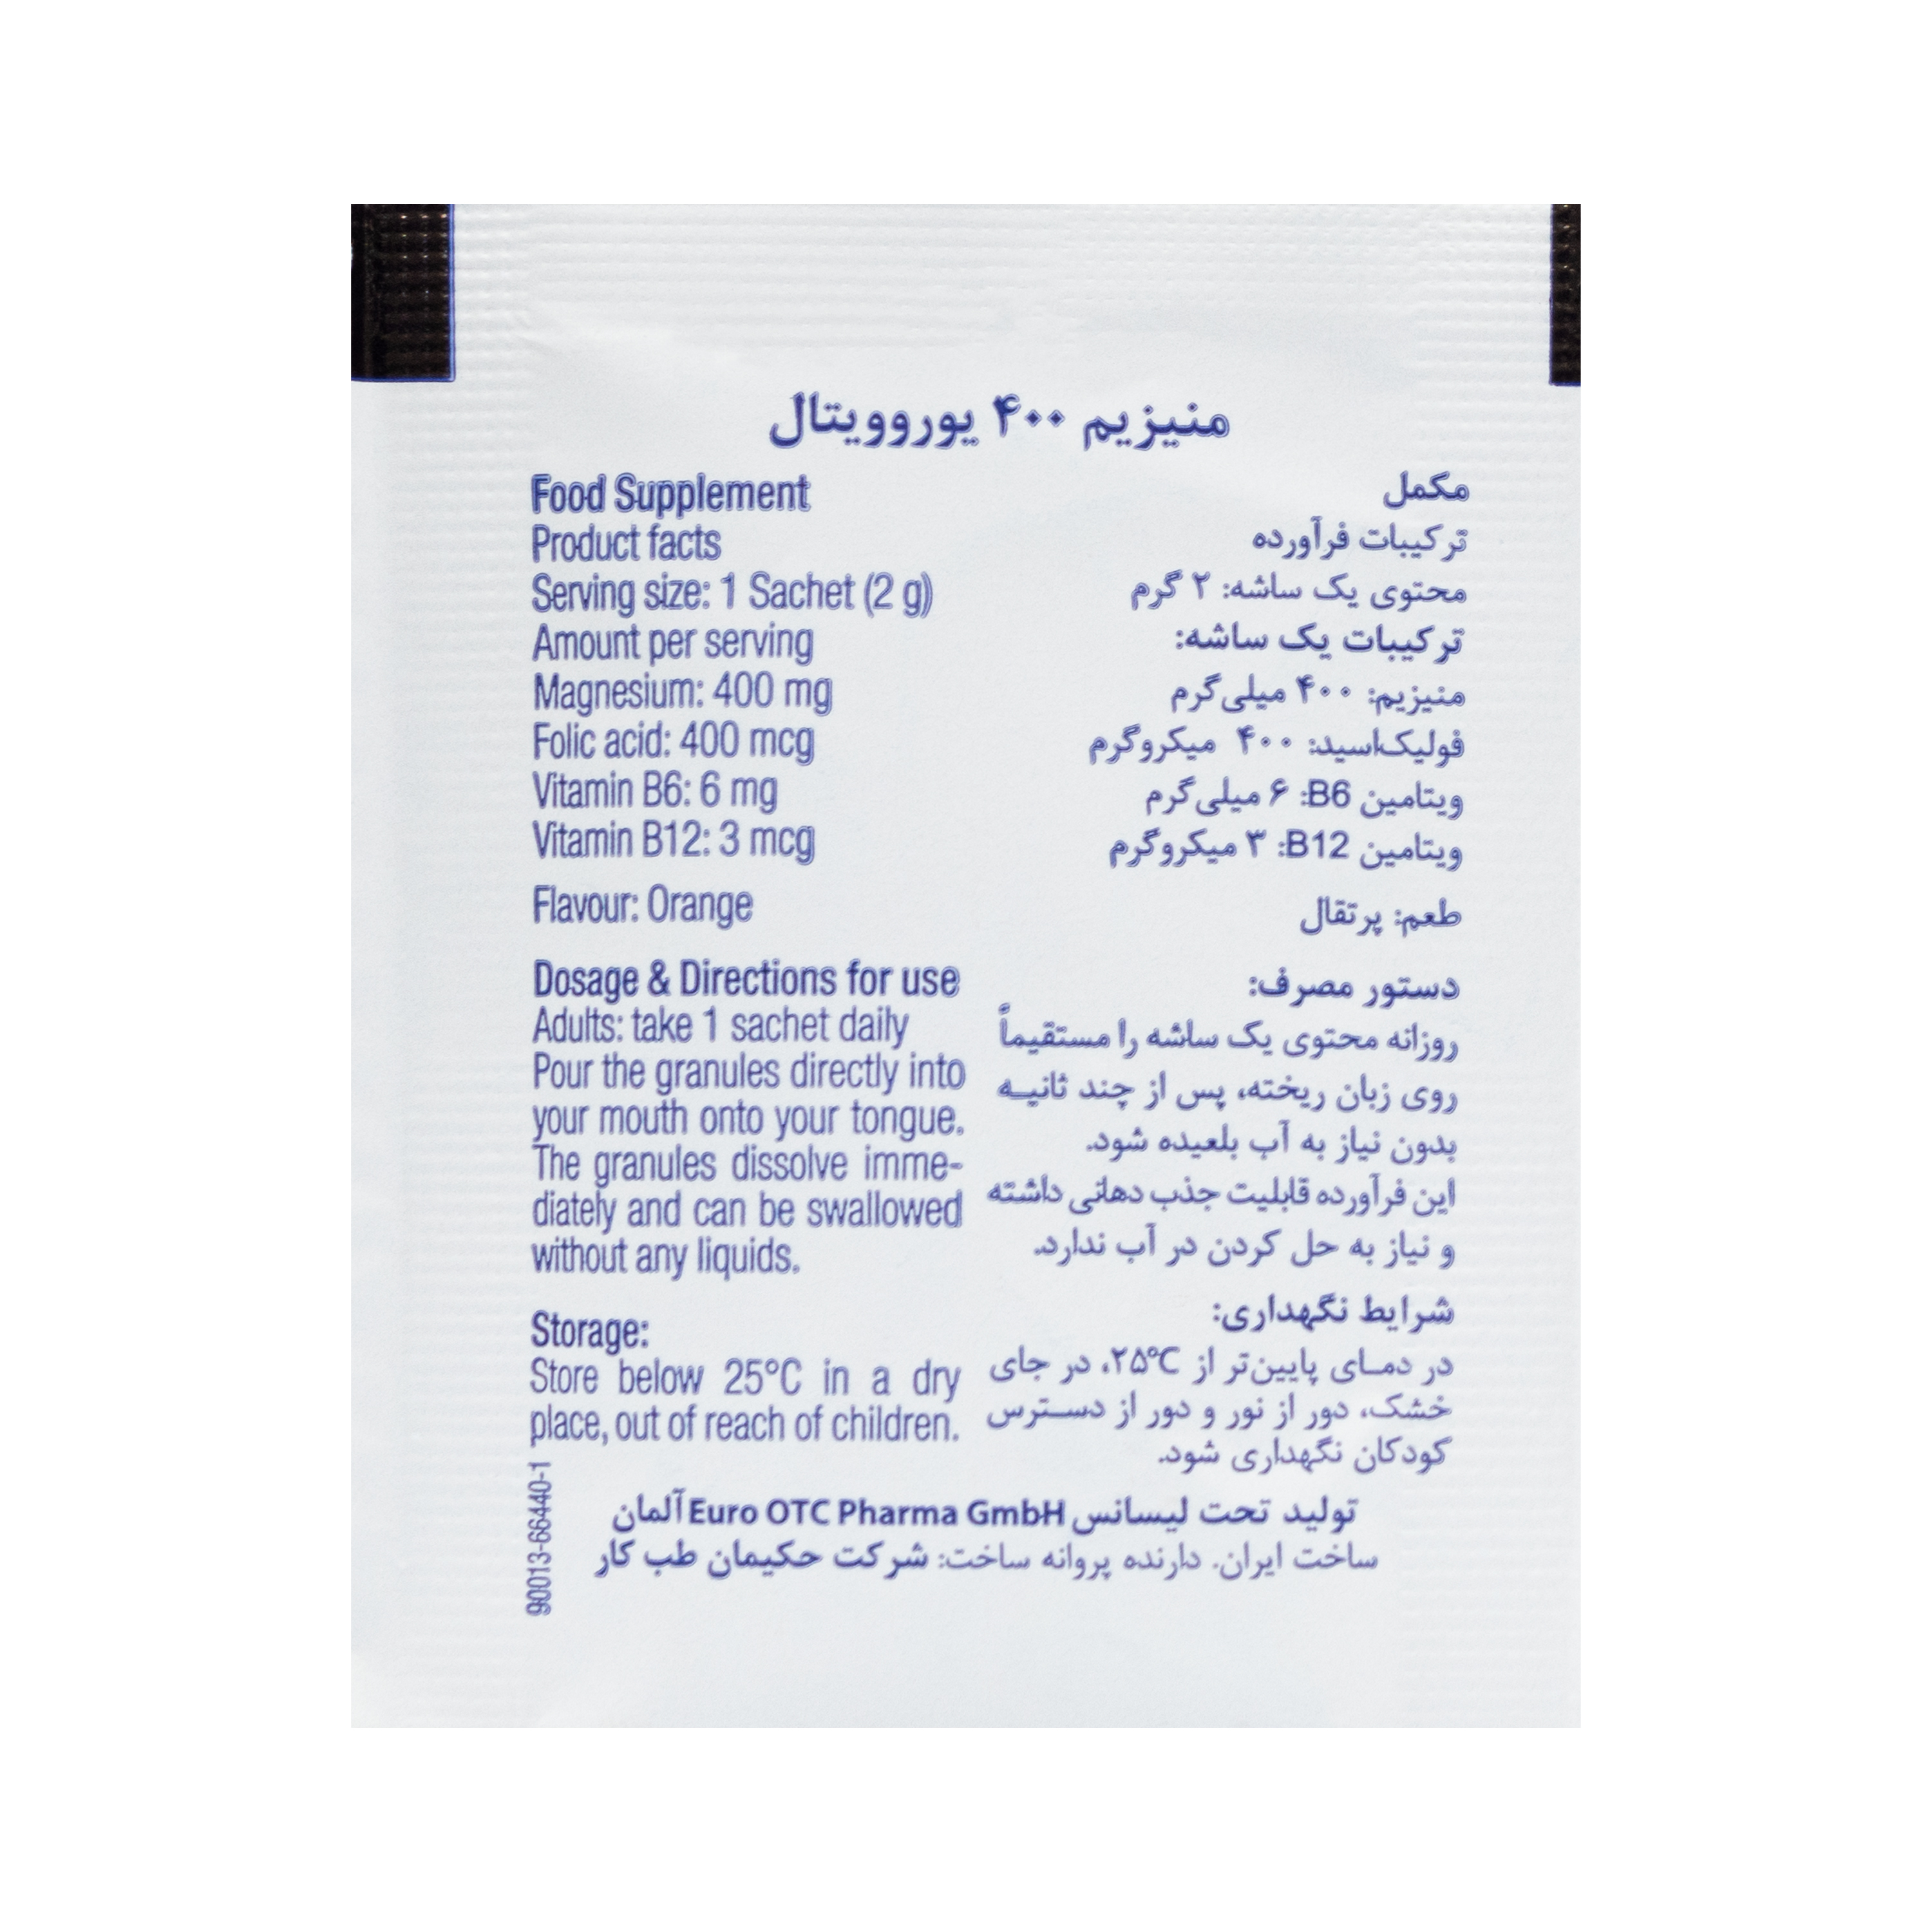 منیزیم ۴۰۰ یوروویتال
Food Supplement
Product facts
Serving size: 1 Sachet (2 g)
Amount per serving
Magnesium: 400 mg
Folic acid: 400 mcg
Vitamin B6: 6 mg
Vitamin B12: 3 mcg
Flavour: Orange
Dosage & Directions for use
Adults: take 1 sachet daily
Pour the granules directly into
your mouth onto your tongue.
The granules dissolve imme-
diately and can be swallowed
without any liquids.
Storage:
Store below 25°C in a dry
place, out of reach of children.
مکمل
ترکیبات فرآورده
محتوی یک ساشه: ۲ گرم
ترکیبات یک ساشه:
منیزیم: ۴۰۰ میلی‌گرم
فولیک‌اسید: ۴۰۰ میکروگرم
ویتامین B6: ۶ میلی‌گرم
ویتامین B12: ۳ میکروگرم
طعم: پرتقال
دستور مصرف:
روزانه محتوی یک ساشه را مستقیماً
روی زبان ریخته، پس از چند ثانیـه
بدون نیاز به آب بلعیده شود.
این فرآورده قابلیت جذب دهانی داشته
و نیاز به حل کردن در آب ندارد.
شرایط نگهداری:
در دمـای پایین‌تر از ۲۵°C، در جای
خشک، دور از نور و دور از دسـترس
کودکان نگهداری شود.
تولید تحت لیسانس Euro OTC Pharma GmbH آلمان
ساخت ایران. دارنده پروانه ساخت: شرکت حکیمان طب کار
90013-66440-1